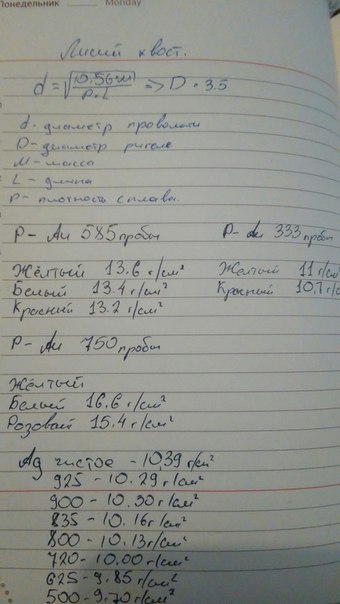 Понедельник Monday
Лисий хвост.
d = √10.56·M / P·L => D · 3.5
d - диаметр проволоки
D - диаметр ригеля
M - масса
L - длина
P - плотность сплава.
P - Au 585 пробы P - Au 333 пробы
Жёлтый 13.6 г/см² Жёлтый 11 г/см²
Белый 13.4 г/см² Красный 10.7 г/см²
Красный 13.2 г/см²
P - Au 750 пробы
Жёлтый
Белый 16.6 г/см²
Розовый 15.4 г/см²
Ag чистое - 10,39 г/см²
925 - 10.29 г/см²
900 - 10.30 г/см²
835 - 10.16 г/см²
800 - 10.13 г/см²
720 - 10.00 г/см²
625 - 9.85 г/см²
500 - 9.70 г/см²